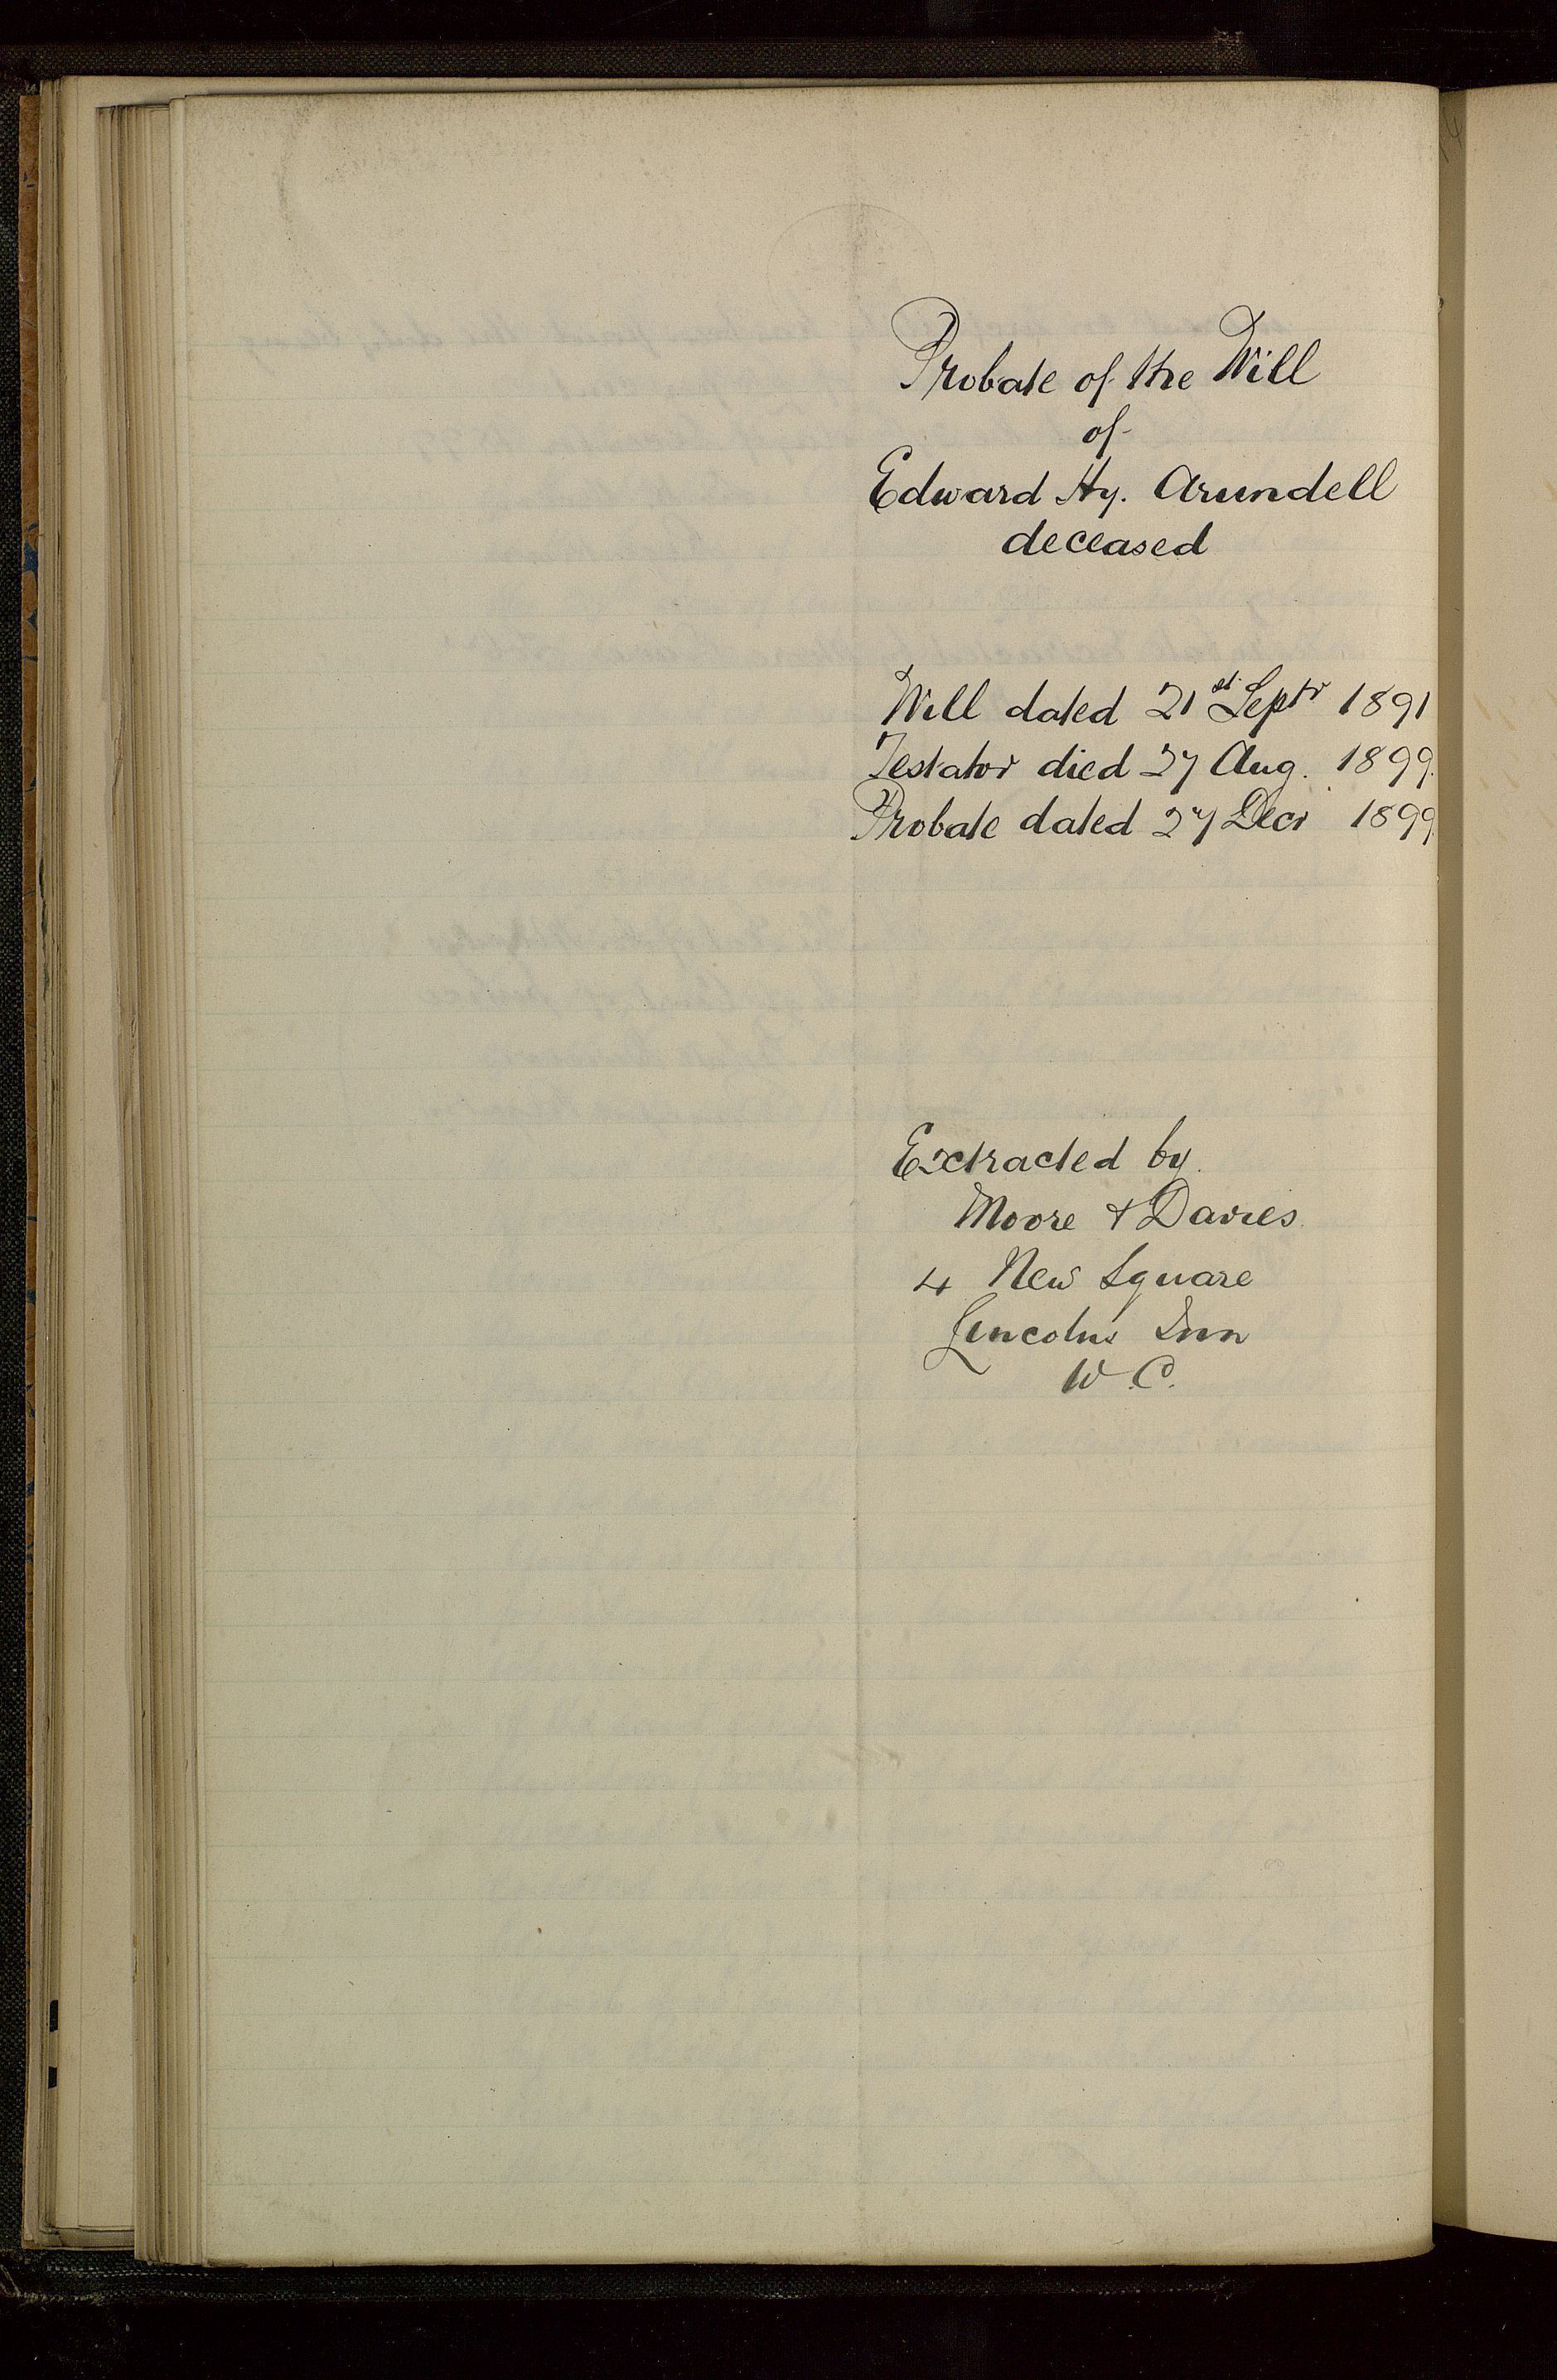 Probate of the Will
of
Edward Hy. Arundell
deceased
Will dated 21st Septr 1891
Testator died 27 Aug. 1899.
Probate dated 27 Decr 1899
Extracted by
Moore & Davies
4 New Square
Lincolns Inn
W.C.